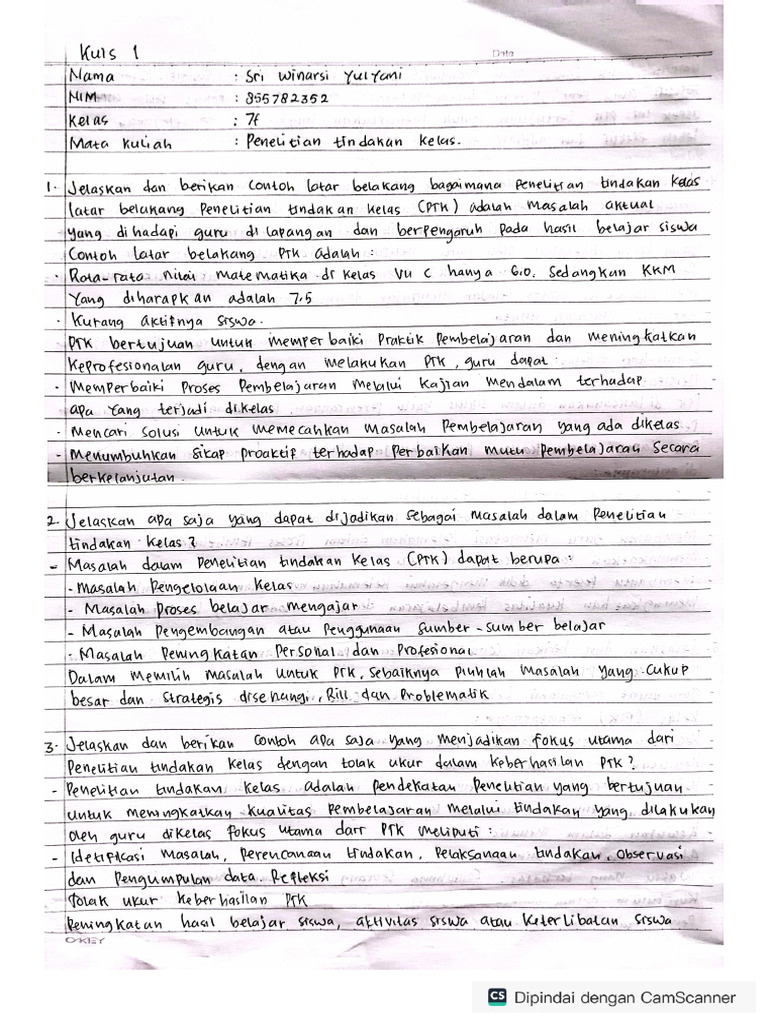 Kuis 1
Date
Nama : Sri Winarsi Yulyani
NIM : 855782352
Kelas : 7f
Mata Kuliah : Penelitian tindakan kelas.
1. Jelaskan dan berikan Contoh latar belakang bagaimana Penelitian tindakan kelas
latar belakang Penelitian tindakan kelas (PTK) adalah Masalah aktual
yang dihadapi guru di lapangan dan berpengaruh pada hasil belajar siswa
Contoh latar belakang PTK adalah :
· Rata-rata nilai Matematika di kelas VII C hanya 6.0. Sedangkan KKM
Yang diharapkan adalah 7.5
- Kurang aktifnya siswa.
PTK bertujuan untuk memperbaiki Praktik Pembelajaran dan Meningkatkan
Keprofesionalan guru, dengan melakukan PTK, guru dapat :
- Memperbaiki Proses Pembelajaran Melalui Kajian Mendalam terhadap
apa yang terjadi dikelas
- Mencari Solusi untuk memecahkan Masalah Pembelajaran yang ada dikelas
- Menumbuhkan sikap proaktif terhadap Perbaikan mutu Pembelajaran Secara
berkelanjutan.
2. Jelaskan apa saja yang dapat dijadikan sebagai Masalah dalam Penelitian
tindakan kelas?
- Masalah dalam Penelitian tindakan kelas (PTK) dapat berupa :
- Masalah Pengelolaan Kelas
- Masalah Proses belajar mengajar
- Masalah Pengembangan atau Penggunaan Sumber-sumber belajar
- Masalah Peningkatan Personal dan Profesional
Dalam Memilih masalah untuk PTK, Sebaiknya Pilihlah Masalah yang Cukup
besar dan Strategis disenangi, Riil dan Problematik
3. Jelaskan dan berikan Contoh apa saja yang menjadikan fokus utama dari
Penelitian tindakan kelas dengan tolak ukur dalam keberhasilan PTK?
- Penelitian tindakan kelas adalah Pendekatan Penelitian yang bertujuan
untuk meningkatkan Kualitas Pembelajaran melalui tindakan yang dilakukan
oleh guru dikelas fokus utama dari PTK meliputi :
- Idetifikasi Masalah, Perencanaan tindakan, Pelaksanaan tindakan, Observasi
dan Pengumpulan data. Refleksi
Tolak ukur keberhasilan PTK
Peningkatan hasil belajar siswa, aktivitas siswa atau keterlibatan siswa
OKEY
CS Dipindai dengan CamScanner